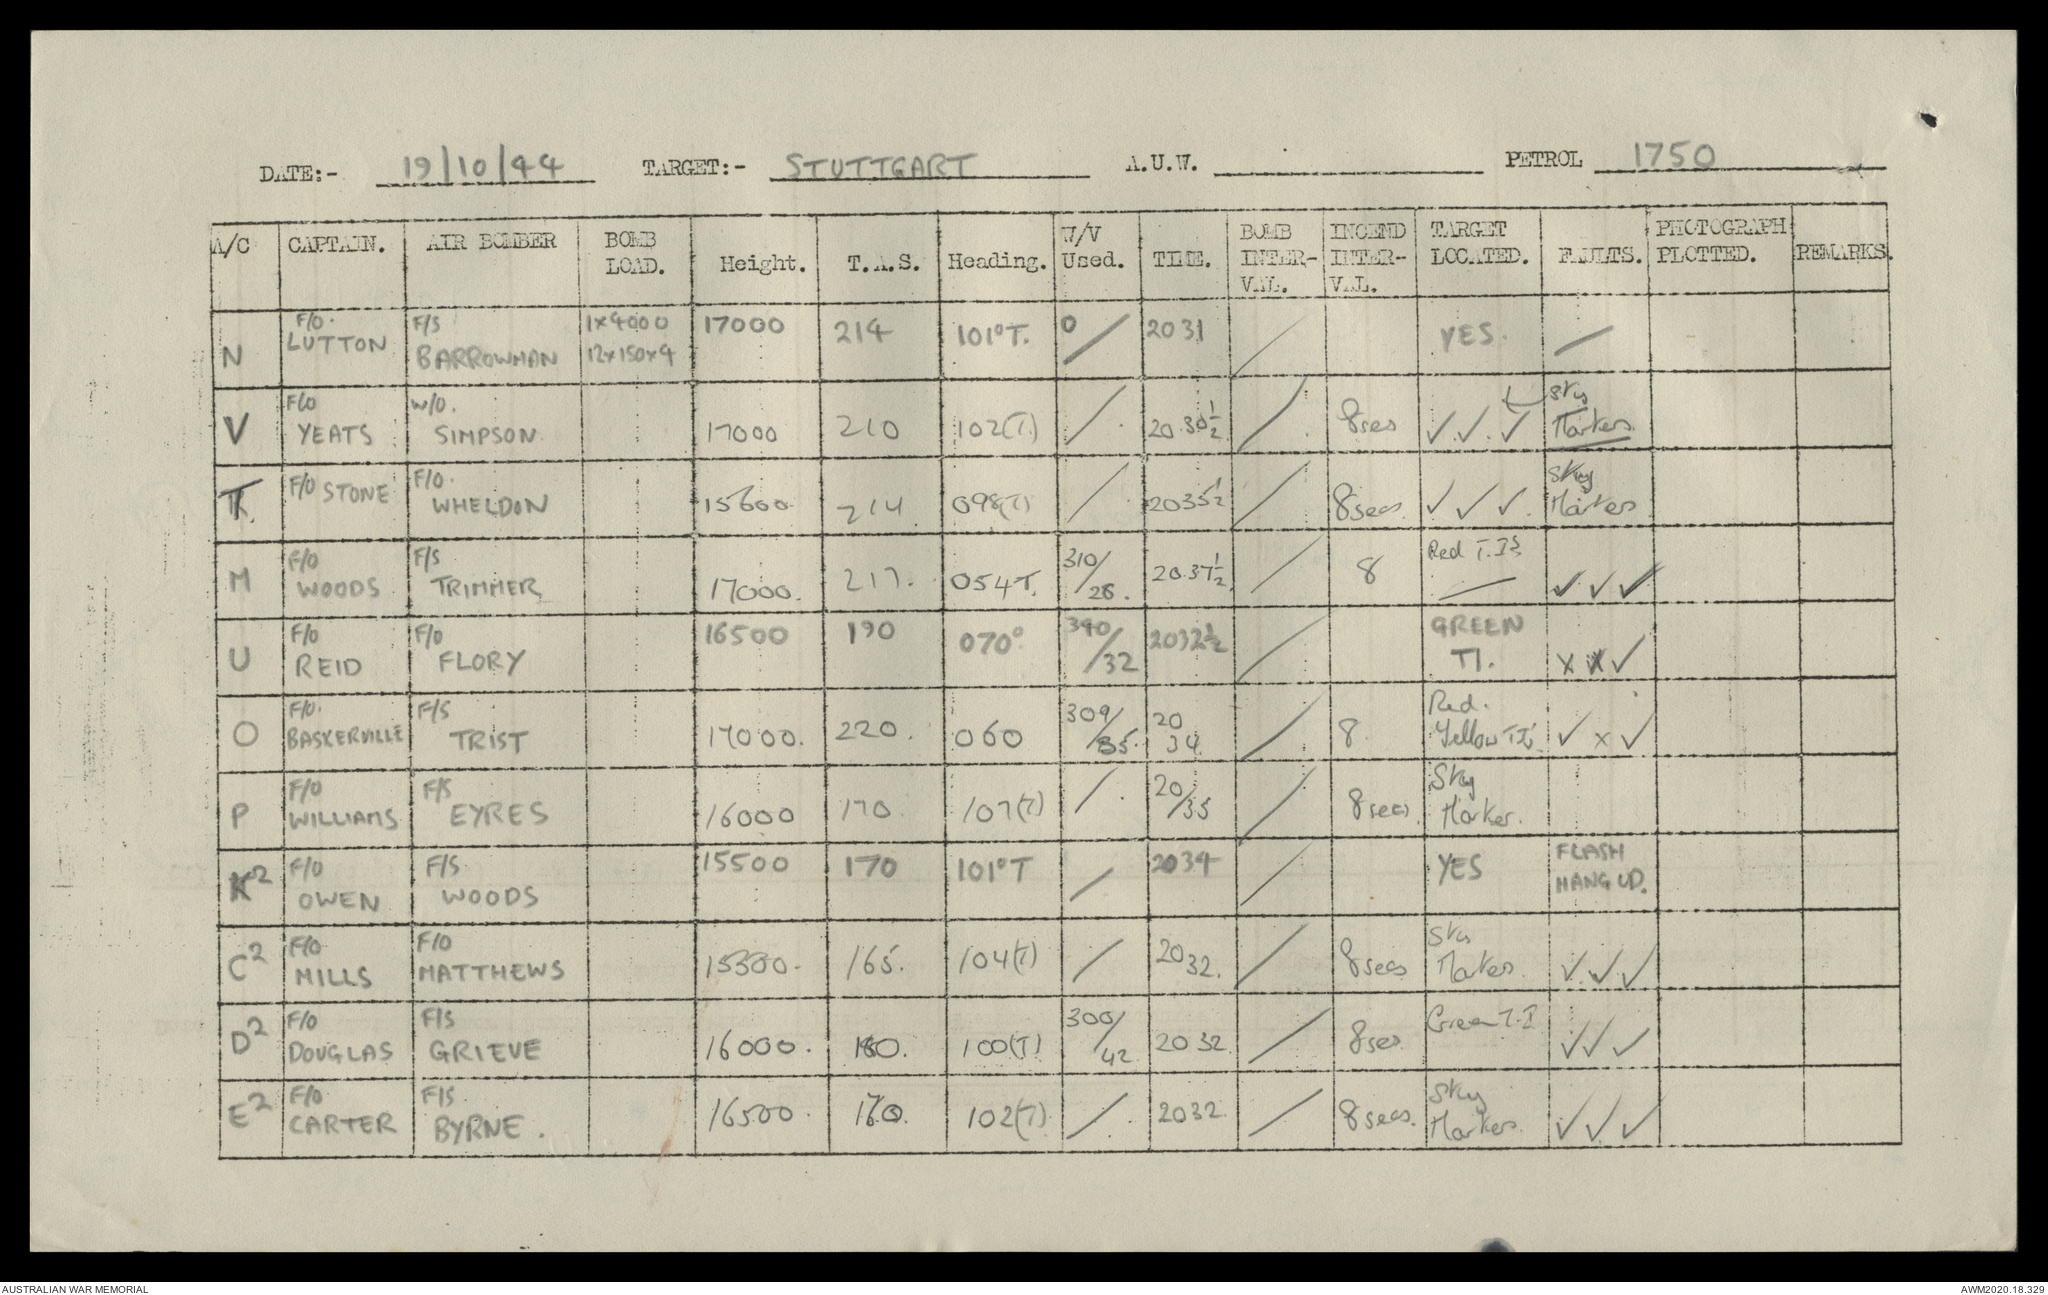 DATE:- 19/10/44 TARGET:- STUTTGART A.U.W. PETROL 1750
A/C CAPTAIN. AIR BOMBER BOMB LOAD. Height. T.A.S. Heading. W/V Used. TIME. BOMB INTER-VAL. INCEND INTER-VAL. TARGET LOCATED. FAULTS. PHOTOGRAPH PLOTTED. REMARKS.
N F/O. LUTTON F/S BARROWMAN 1x4000 12x150x4 17000 214 101°T. 0/ 2031 / YES. /
V F/O YEATS W/O. SIMPSON. 17000 210 102(T) / 20.30½ / 8secs ✓ ✓ ✓ Sky Markers
F/O STONE F/O. WHELDON 15600. 214 098(T) / 2035½ / 8secs. ✓ ✓ ✓ Sky Markers
M F/O WOODS F/S TRIMMER 17000. 217. 054T. 310/28. 20.37½ / 8 Red T.I's / ✓ ✓ ✓
U F/O REID F/O FLORY 16500 190 070° 340/32 2032½ / GREEN TI. x x ✓
O F/O. BASKERVILLE F/S TRIST 17000. 220. 060 309/35. 20 34 / 8. Red. Yellow TI's ✓ x ✓
P F/O WILLIAMS F/S EYRES 16000 170. 107(T) / 20/35 / 8secs. Sky Marker.
K² F/O OWEN F/S WOODS 15500 170 101°T / 2034 / YES FLASH HANG UP.
C² F/O MILLS F/O MATTHEWS 15300. 165. 104(T) / 2032. / 8secs Sky Markers. ✓ ✓ ✓
D² F/O DOUGLAS F/S GRIEVE 16000. 180. 100(T) 300/42 2032 / 8secs. Green T.I ✓ ✓ ✓
E² F/O CARTER F/S BYRNE. 16500. 170. 102(T) / 2032. / 8secs. Sky Markers. ✓ ✓ ✓
AUSTRALIAN WAR MEMORIAL
AWM2020.18.329